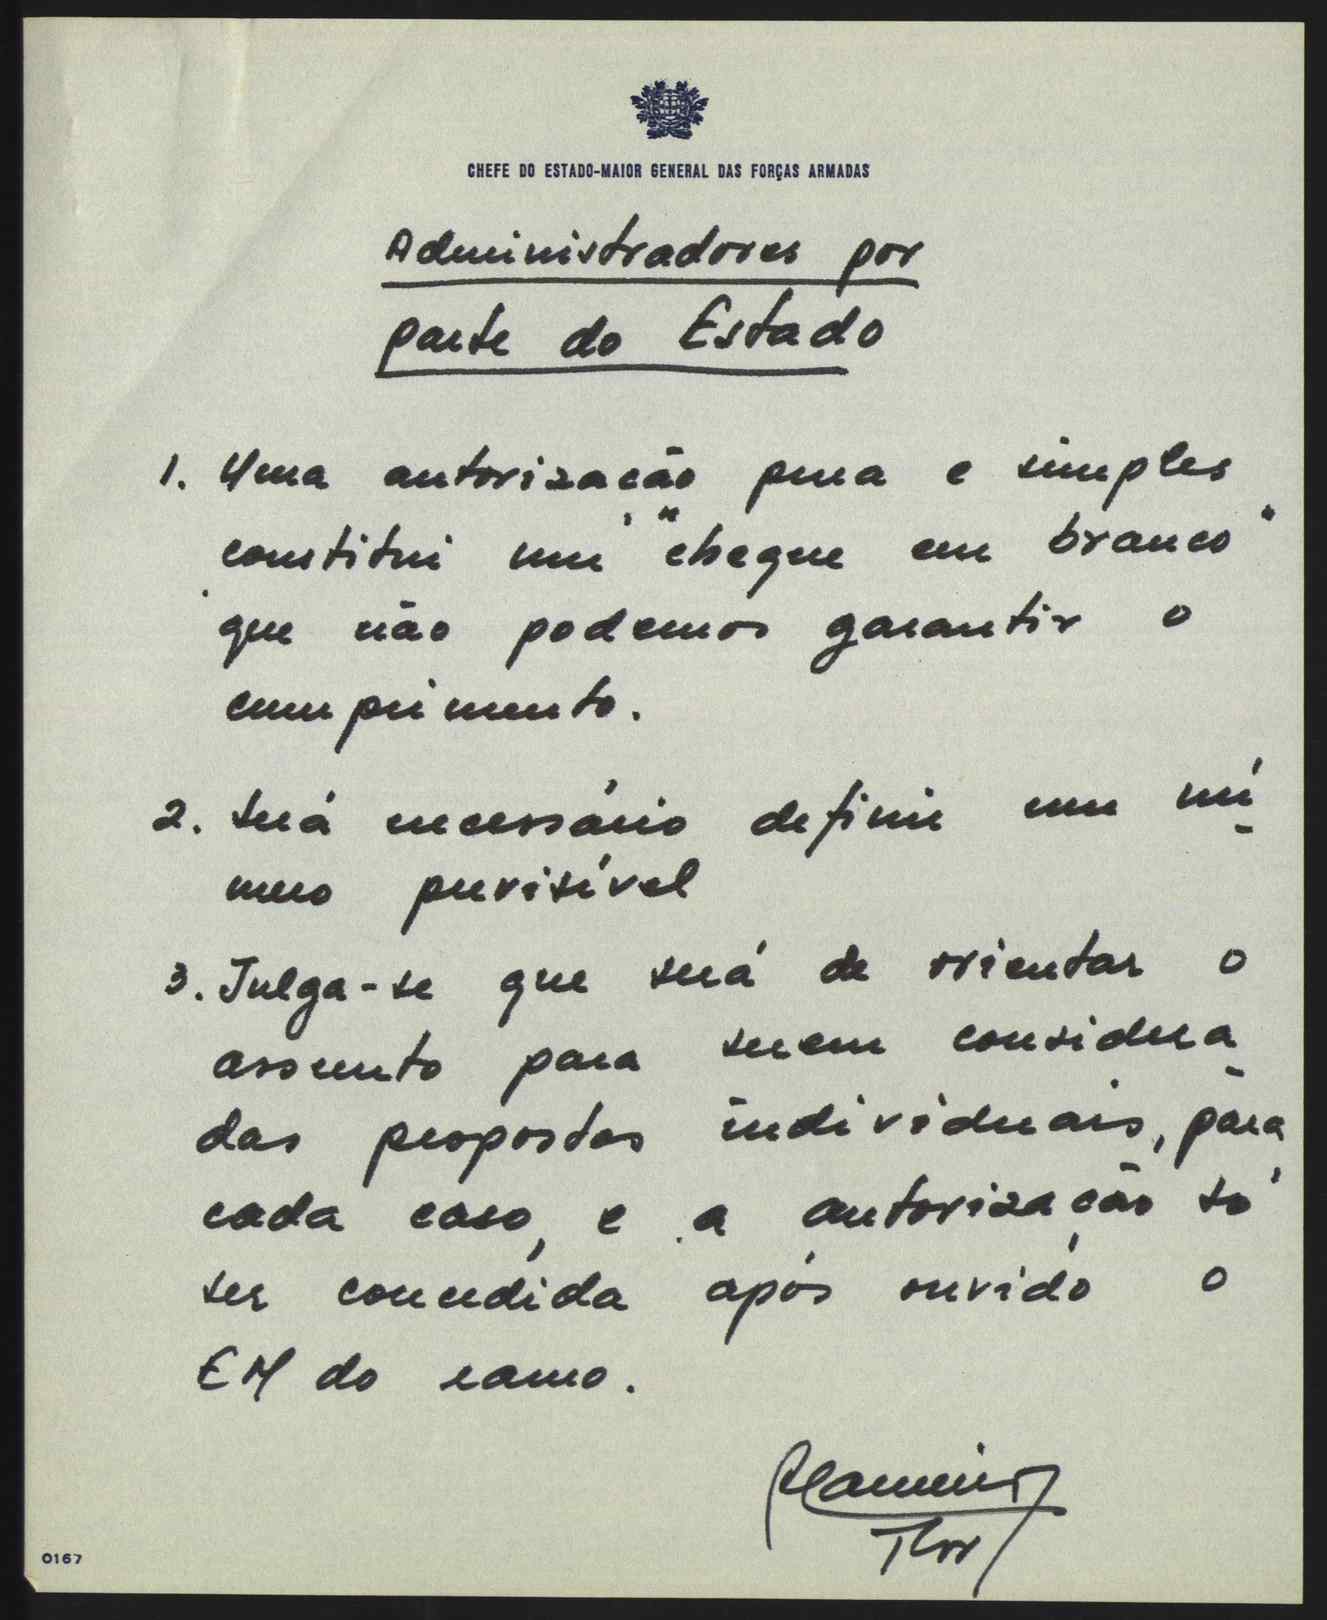 CHEFE DO ESTADO-MAIOR GENERAL DAS FORÇAS ARMADAS
Administradores por
parte do Estado
1. Uma autorização pura e simples
constitui um "cheque em branco"
que não podemos garantir o
cumprimento.
2. Será necessário definir um mí
nimo previsível
3. Julga-se que será de orientar o
assunto para serem considera
das propostas individuais, para
cada caso, e a autorização só
ser concedida após ouvido o
EM do ramo.
0167